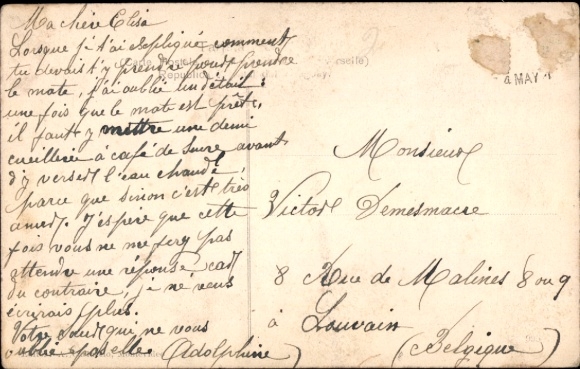 Ma chère Elisa
Lorsque je t'ai expliqué comment
tu devais t'y prendre pour prendre
le mate, j'ai oublié un détail :
une fois que le mate est prêt,
il faut y mettre une demi
cueillerie à café de sucre avant
d'y verser l'eau chaude
parce que sinon c'est très
amer. J'espère que cette
fois vous ne me ferez pas
attendre une réponse, car
du contraire, je ne vous
écrirais plus.
Votre sœur qui ne vous
oublie pas elle. Adolphine
à MAY
Monsieur
Victor Demesmacre
8 Rue de Malines 8 ou 9
à Louvain
(Belgique)